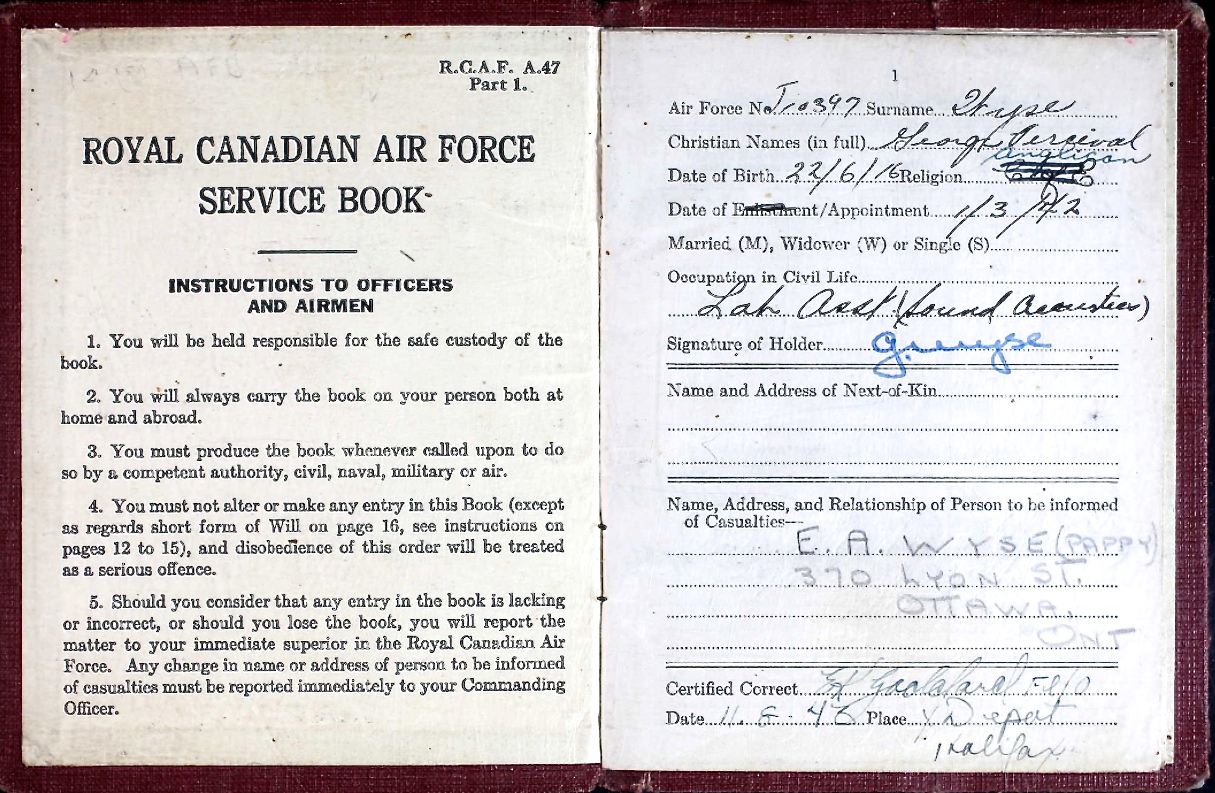 R.C.A.F. A.47
Part 1.
ROYAL CANADIAN AIR FORCE
SERVICE BOOK
INSTRUCTIONS TO OFFICERS
AND AIRMEN
1. You will be held responsible for the safe custody of the
book.
2. You will always carry the book on your person both at
home and abroad.
3. You must produce the book whenever called upon to do
so by a competent authority, civil, naval, military or air.
4. You must not alter or make any entry in this Book (except
as regards short form of Will on page 16, see instructions on
pages 12 to 15), and disobedience of this order will be treated
as a serious offence.
5. Should you consider that any entry in the book is lacking
or incorrect, or should you lose the book, you will report the
matter to your immediate superior in the Royal Canadian Air
Force. Any change in name or address of person to be informed
of casualties must be reported immediately to your Commanding
Officer.
1
Air Force No. J10397 Surname Wyse
Christian Names (in full) George Percival
Anglican
Date of Birth 22/6/16 Religion
Date of Enlistment/Appointment 1/3/42
Married (M), Widower (W) or Single (S)
Occupation in Civil Life
Lab Asst (Sound Acoustics)
Signature of Holder G. Wyse
Name and Address of Next-of-Kin
Name, Address, and Relationship of Person to be informed
of Casualties—
E. A. WYSE (PAPPY)
370 LYON ST.
OTTAWA.
ONT
Certified Correct F/O
Date 11.8.43 Place Y Depot
Halifax